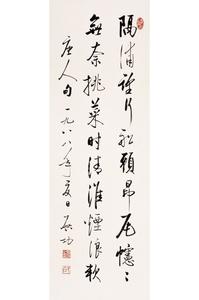 隔浦望行船頭昂尾幰〻
無奈挑菜時清淮煙浪軟
唐人句一九八八年夏日啟功